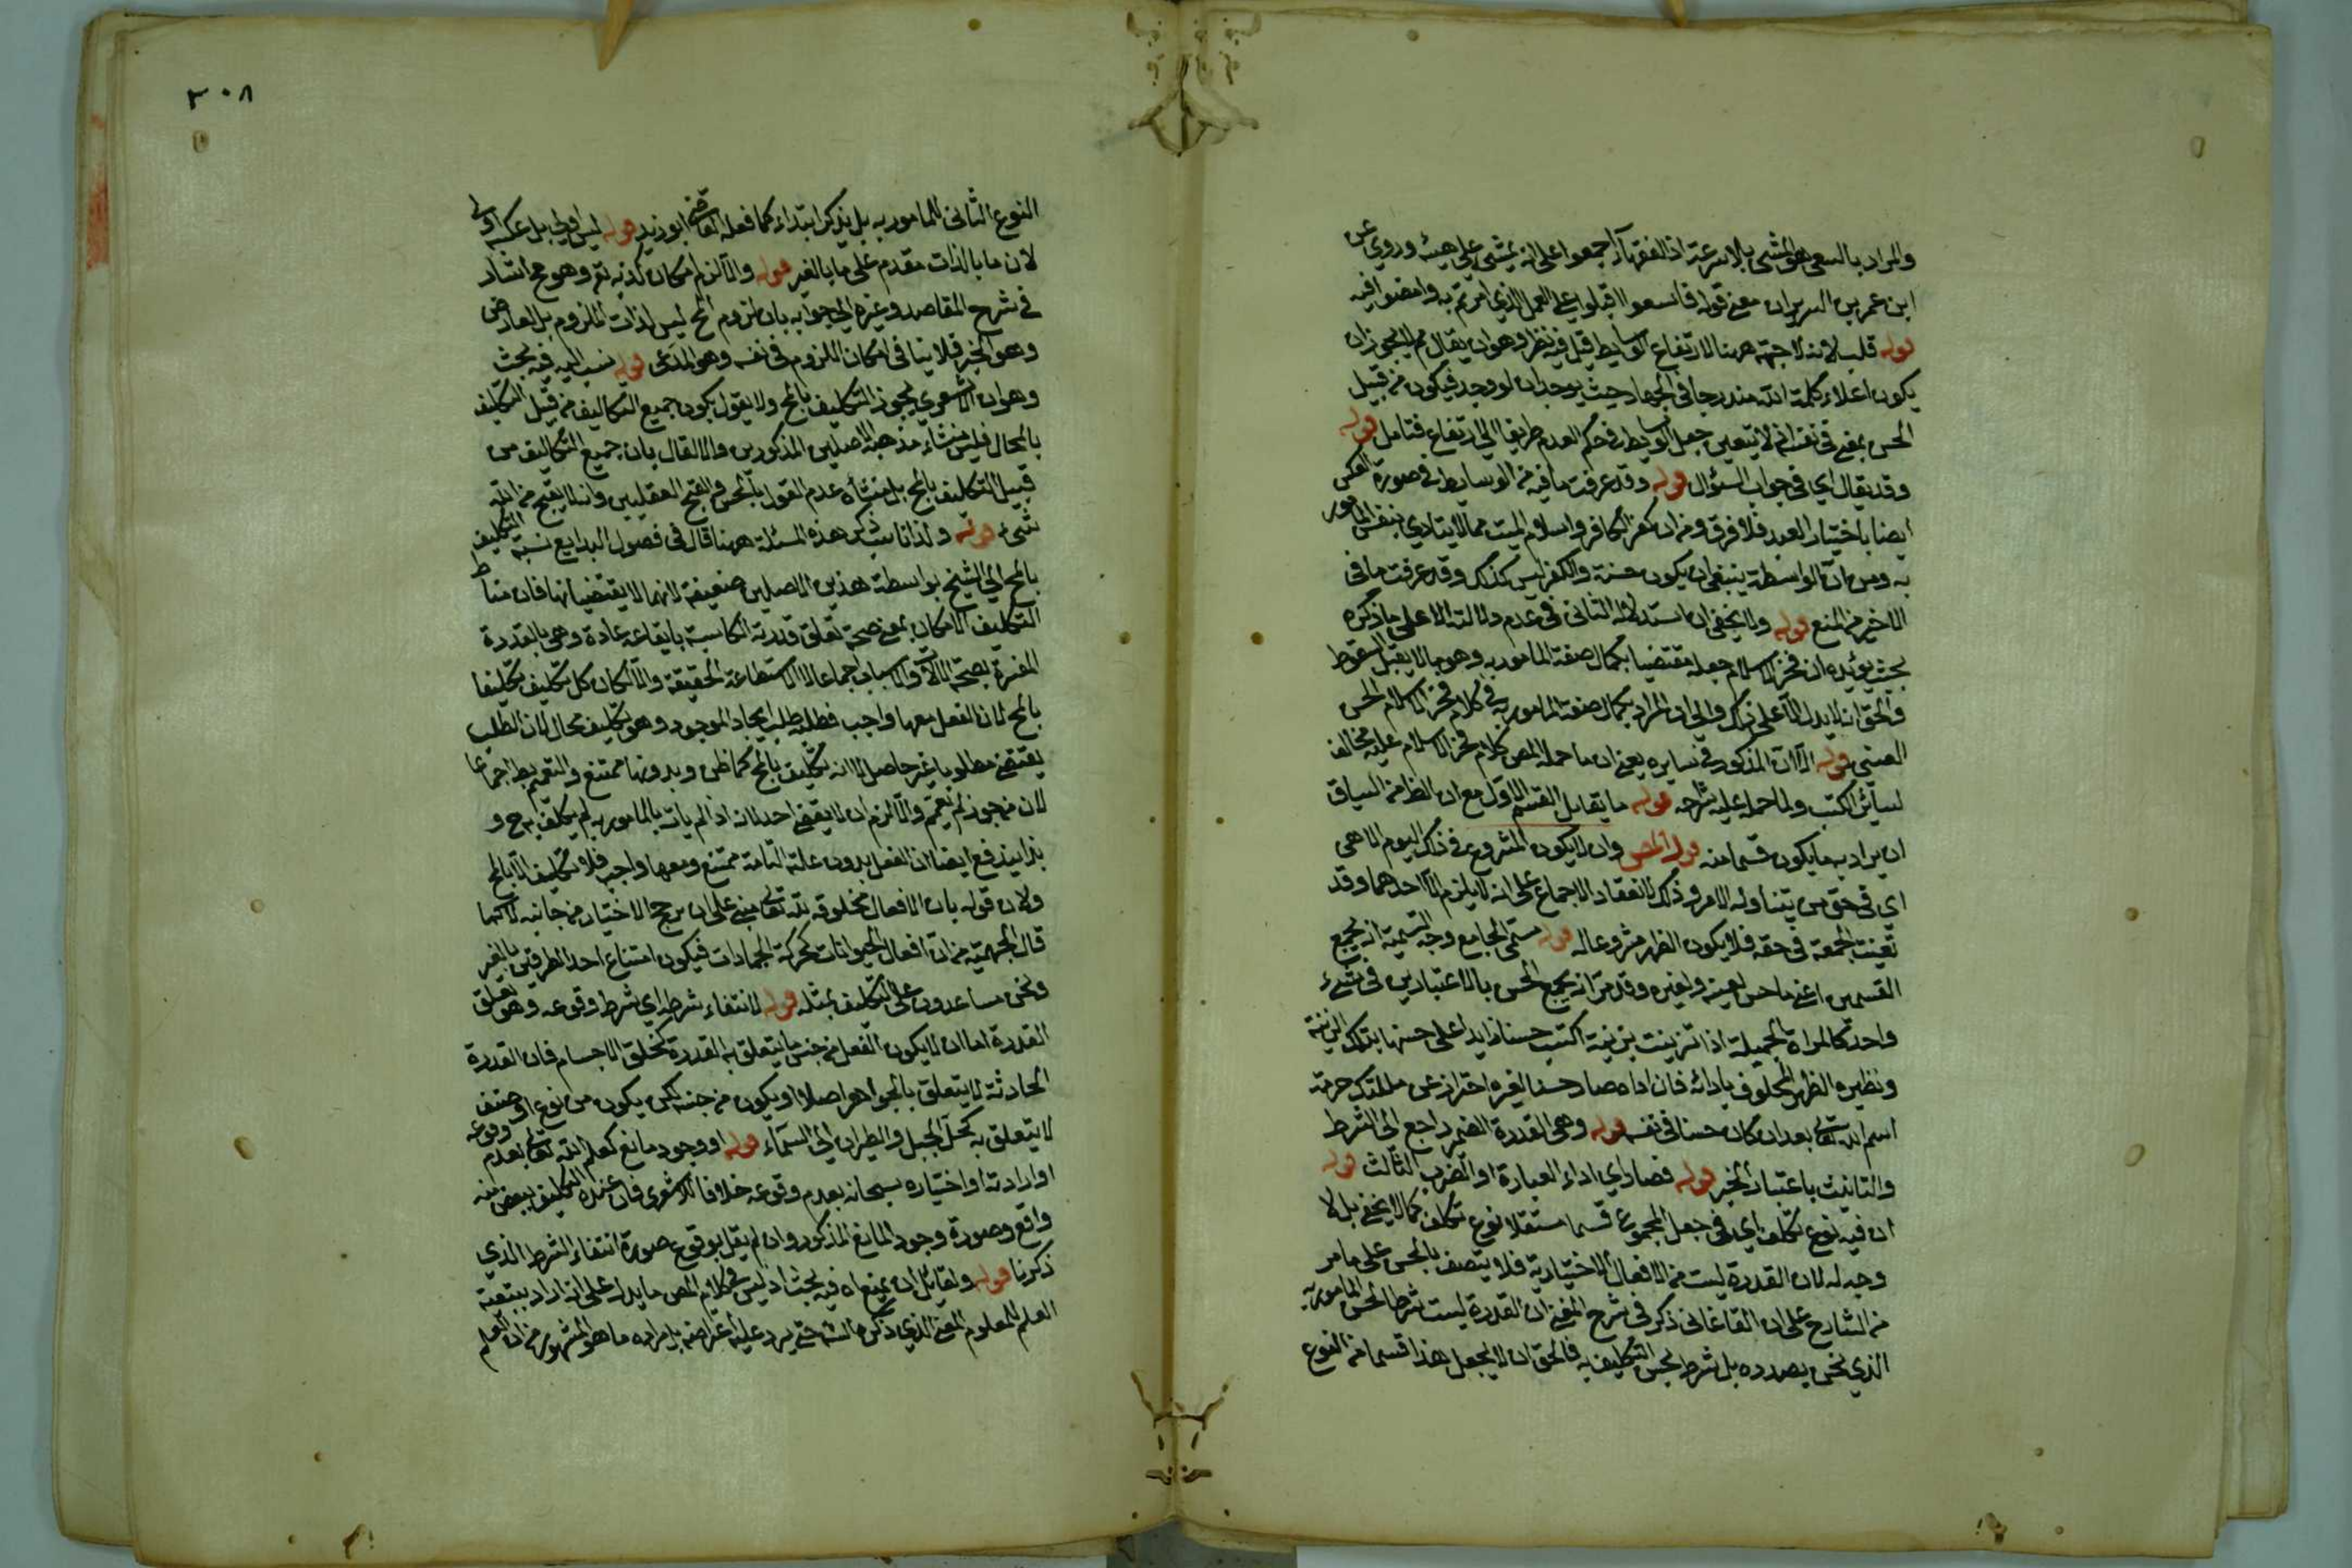 والمراد بالسعي هو المشي بلا سرعة اذ الفقهاء اجمعوا على انه يمشي على هيئه وروي عن
ابن عمر بن الزبير ان معنى قوله فاسعوا اقبلوا على العمل الذي امرتم به وامضوا فيه
قوله قلب لانه لا جهة ههنا لارتفاع الوسايط قيل فيه نظر وهو ان يقال لم لا يجوز ان
يكون اعلاء كلمة الله مندرجا في الجهاد حيث يوجد ان لو وجد فيكون من قبيل
الحسن بمعنى في نفسه انه لا يتعين جعل الوسايط في حكم العدم طريقا الى الارتفاع فتامل قوله
وقد يقال اي في جواب السؤال قوله وقد عرفت ما فيه من ان الوسايط في صورة العكس
ايضا باختيار العبد فلا فرق ومن ان كفر الكافر واسلام الميت مما لا يتادى بنفس المامور
به ومن ان الواسطة ينبغي ان يكون حسنة والكفر ليس كذلك وقد عرفت ما في
الاخير من المنع قوله ولا يخفى ان استدلاله الثاني في عدم دلالته الا على ما ذكره
بحث يؤيده ان فخر الاسلام جعله مقتضيا بكمال صفة المامور به وهو ما لا يقبل السقوط
والحق انه لا يدل الا على ذلك والى ان المراد بكمال صفة المامور به في كلام فخر الاسلام الحسن
العيني قوله الا ان المذكور في سايره يعني ان ما حمله المص كلام فخر الاسلام عليه مخالف
لسائر الكتب ولما حمله عليه شراحه قوله ما يقابل القسم الاول مع ان الظ من السياق
ان يراد به ما يكون قسما منه قوله المص وان لا يكون المشروع في ذلك اليوم الا هي
اي في حق من يتناوله الامر وذلك لانعقاد الاجماع على انه لا يلزم الا احدهما وقد
تعينت الجمعة في حقه فلا يكون الظهر مشروعا له قوله سمى الجامع وجه التسمية انه يجمع
القسمين اعني ما حسن لعينه ولغيره وقد مر انه يجمع الحسن بالاعتبارين في شيء
واحد كالمراة الجميلة اذا تزينت بزينة اكتسبت حسنا زايدا على حسنها بتلك الزينة
ونظيره الظهر المحلوف بادائه فان اداه صار حسنا لغيره احتراز عن هتك حرمة
اسم الله تعالى بعد ان كان حسنا في نفسه قوله وهي القدرة الضمير راجع الى الشرط
والتانيث باعتبار الخبر قوله فصار اي اداء العبارة او الضرب الثالث قوله
ان فيه نوع تكلف اي في جعل المجموع قسما مستقلا نوع تكلف كما لا يخفى بل لا
وجه له لان القدرة ليست من الافعال الاختيارية فلا يتصف بالحسن على ما مر
من الشارح على ان القاغاني ذكر في شرح المغني ان القدرة ليست شرطا لحسن المامور به
الذي نحن بصدده بل شرط لحسن التكليف به فالحق ان لا يجعل هذا قسما من النوع
٣٠٨
النوع الثاني للمامور به بل يذكر ابتداء كما فعله القاضي ابو زيد قوله ليس اولى بل عكسه اولى
لان ما بالذات مقدم على ما بالغير قوله والا لزم امكان كذبه تعالى وهو مح اشار
في شرح المقاصد وغيره الى جوابه بان لزوم المح ليس لذات الملزوم بل لعارض
وهو الخبر فلا ينافي امكان الملزوم في نفسه وهو المدعى قوله نسب اليه فيه بحث
وهو ان الاشعري يجوز التكليف بالمح ولا يقول بكون جميع التكاليف من قبيل التكليف
بالمحال فليس منشاء مذهبه الاصلين المذكورين والا لقال بان جميع التكاليف من
قبيل التكليف بالمح بل منشأه عدم القول بالحسن والقبح العقليين وانه لا يقبح من الله
شيء قوله ولذا ناسب ذكر هذه المسئلة ههنا قال في فصول البدايع نسبة التكليف
بالمح الى الشيخ بواسطة هذين الاصلين ضعيفة لانهما لا يقتضيانها فان مناط
التكليف الامكان بمعنى صحة تعلق قدرته الكاسبة بايقاعه عادة وهي بالقدرة
المفسرة بصحة الآلات والاسباب اجماعا لا الاستطاعة الحقيقة والا لكان كل تكليف تكليفا
بالمح لان الفعل معها واجب فطلبه طلب ايجاد الموجود وهو تكليف محال لان الطلب
يقتضي مطلوبا غير حاصل لا انه تكليف بالمح كما ظن وبدونها ممتنع والتعميم بط اجماعا
لان من جوز لم يعمم والا لزم ان لا يقضي احد لانه اذا لم يات بالمامور به لم يكلف به ح و
بذا يندفع ايضا ان الفعل بدون علته التامة ممتنع ومعها واجب فلا تكليف الا بالمح
ولان قوله بان الافعال مخلوقة لله تعالى مبني على ان مرجح الاختيار من جانبه لا كما
قال الجهمية من ان افعال الحيوانات كحركة الجمادات فيكون امتناع احد الطرفين بالغير
ونحن مساعدون على التكليف بمثله قوله لانتفاء شرطه اي شرط وقوعه وهو تعلق
القدرة اما ان لا يكون الفعل من جنس ما يتعلق به القدرة كخلق الاجسام فان القدرة
الحادثة لا يتعلق بالجواهر اصلا او يكون من جنسه لكن يكون من نوع او صنف
لا يتعلق به كحمل الجبل والطيران الى السماء قوله او وجود مانع كعلم الله تعالى بعدم وقوعه
او ارادته او اختياره سبحانه بعدم وقوعه خلافا للاشعري فان عنده التكليف ببعض منه
واقع وصورة وجود المانع المذكور وان لم يقل بوقوع صورة انتفاء الشرط الذي
ذكرنا قوله ولقائل ان يمنع اه فيه بحث اذ ليس في كلام المص ما يدل على انه اراد بتبعية
العلم للمعلوم المعنى الذي ذكره الشه حتى يرد عليه اعتراضه بل مراده ما هو المشهور من ان العلم